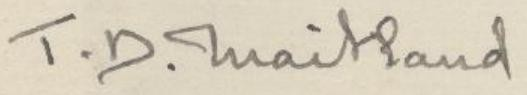 T. D. Maitland